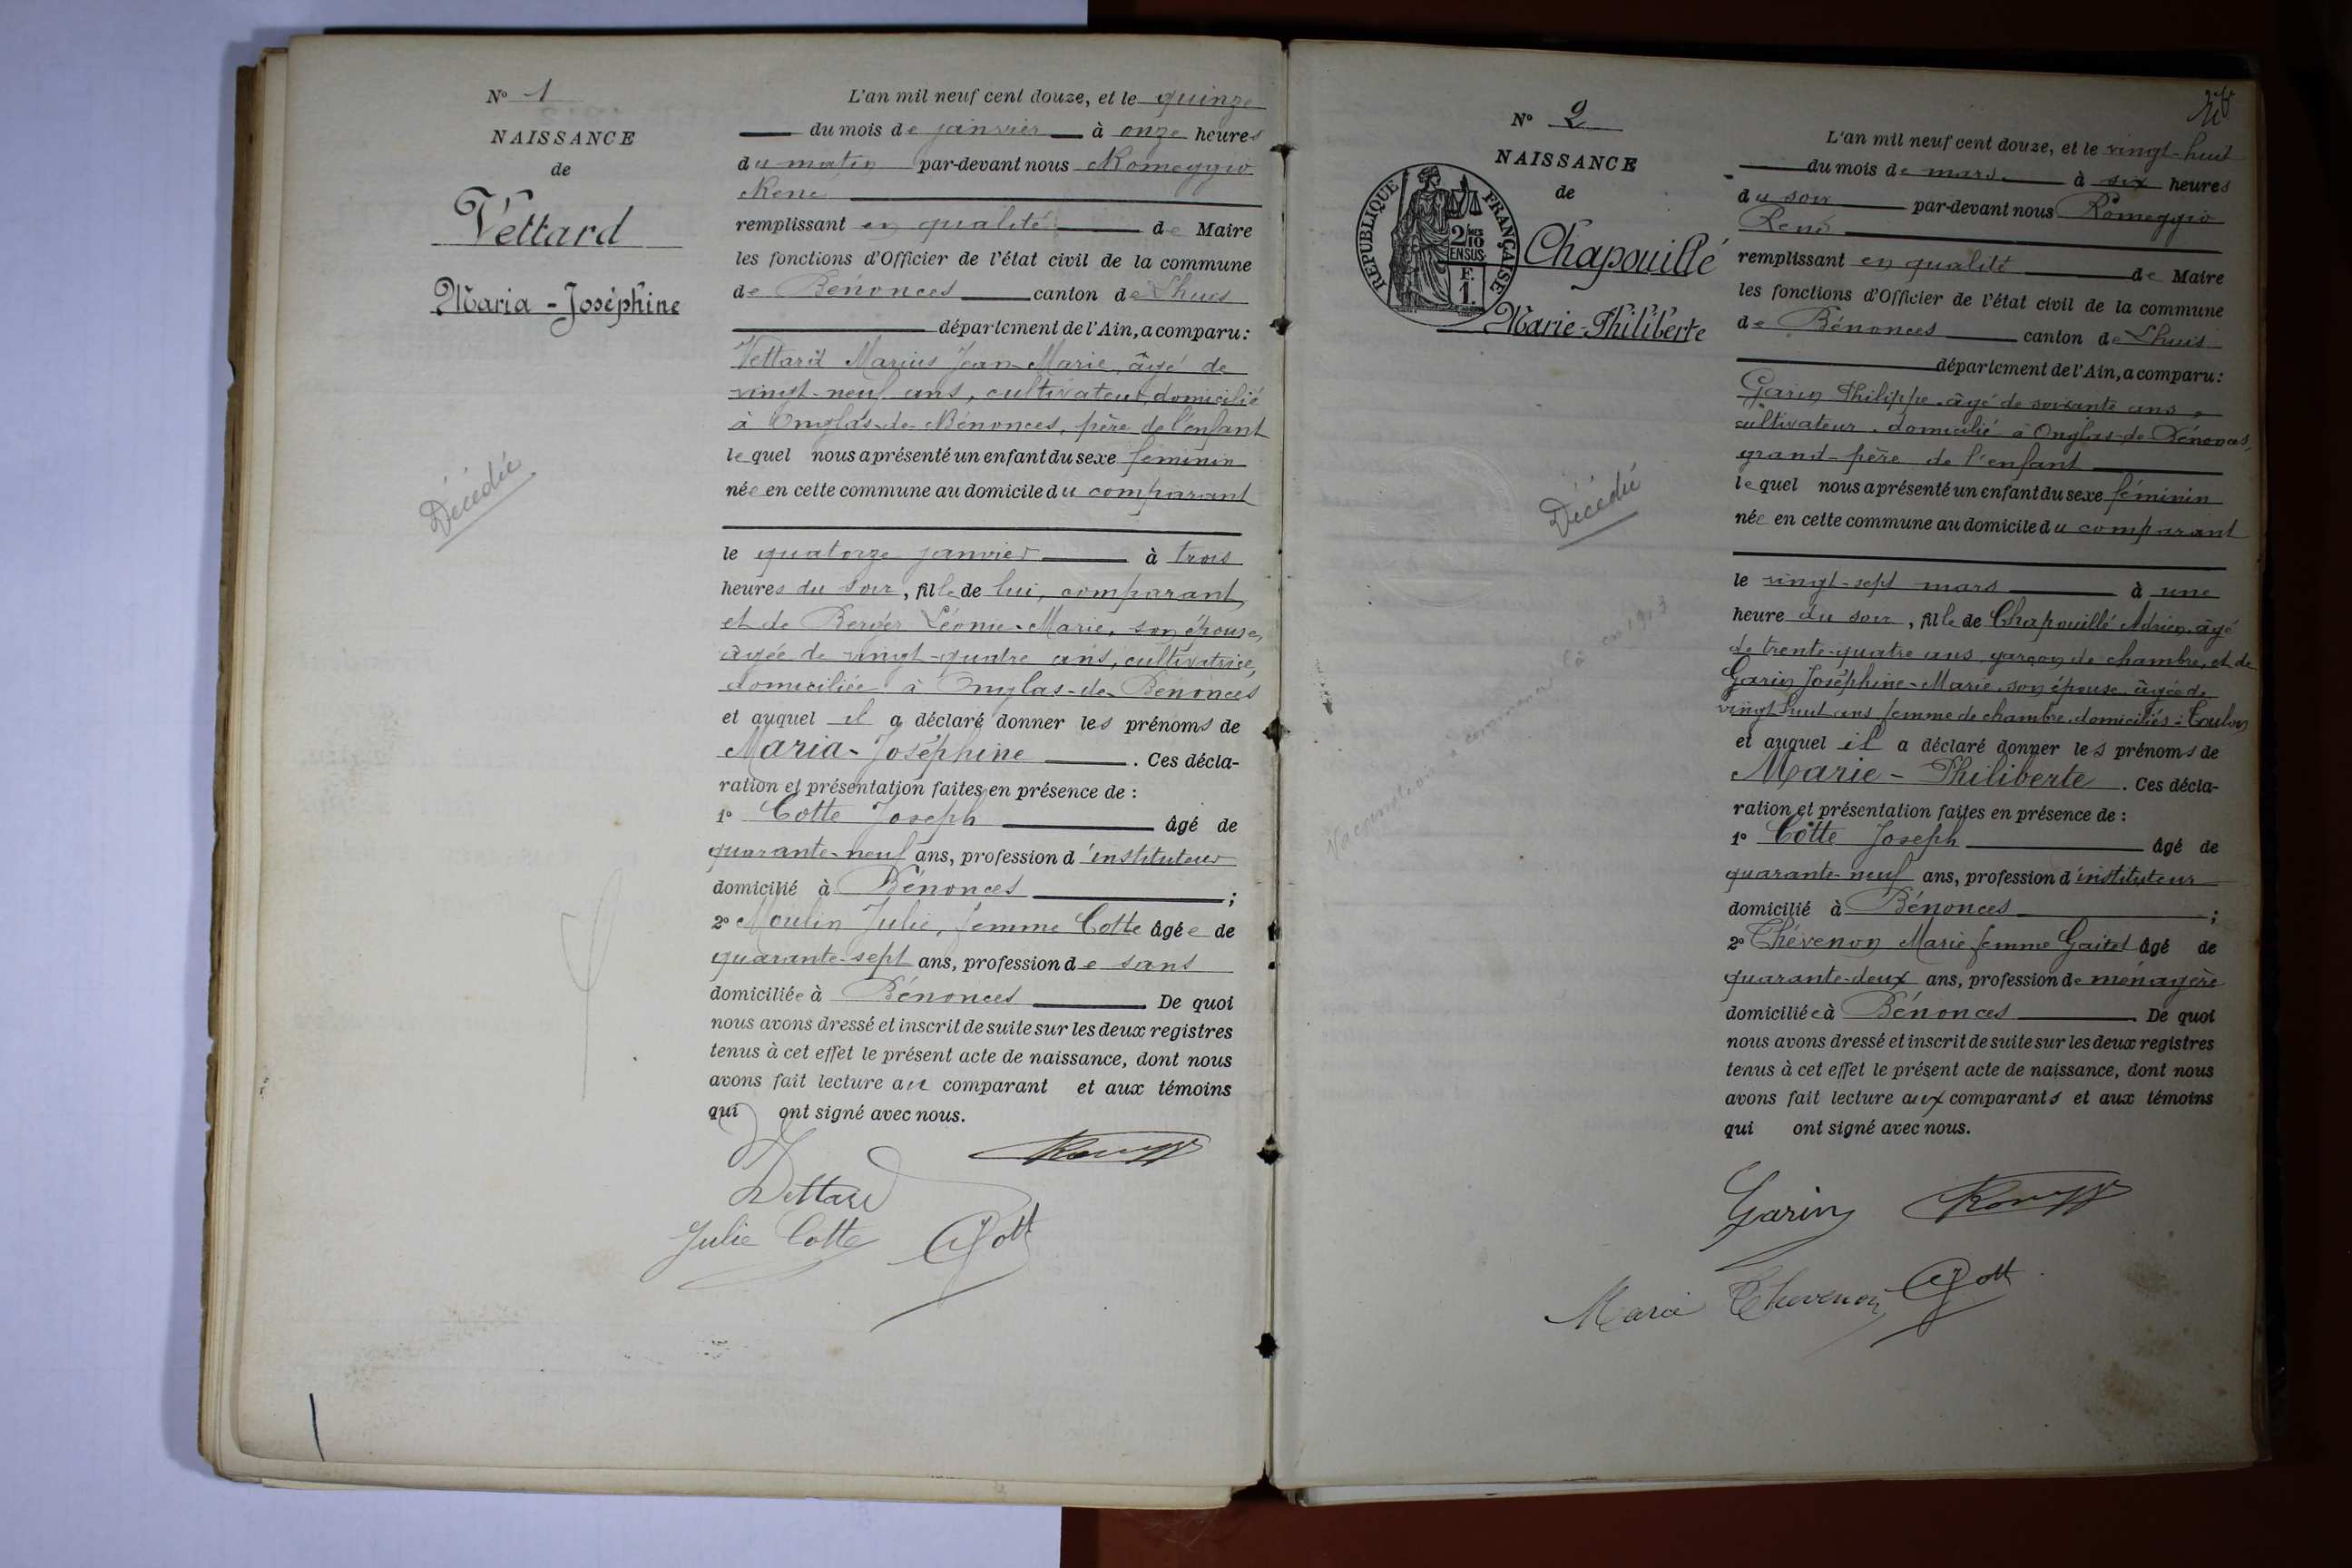 N° 1
NAISSANCE
de
Vettard
Maria-Joséphine
Décédée
L'an mil neuf cent douze, et le quinze
du mois de janvier à onze heures
du matin par-devant nous Romeggio
René
remplissant en qualité de Maire
les fonctions d'Officier de l'état civil de la commune
de Bénonces canton de Lhuis
département de l'Ain, a comparu:
Vettard Marius Jean-Marie, âgé de
vingt-neuf ans, cultivateur, domicilié
à Onglas-de-Bénonces, père de l'enfant
lequel nous a présenté un enfant du sexe féminin
née en cette commune au domicile du comparant
le quatorze janvier à trois
heures du soir, fille de lui, comparant,
et de Léonie-Marie, son épouse,
âgée de vingt-quatre ans, cultivatrice,
domiciliée à Onglas-de-Bénonces
et auquel il a déclaré donner les prénoms de
Maria-Joséphine. Ces décla-
ration et présentation faites en présence de :
1° Cotte Joseph âgé de
quarante-neuf ans, profession d'instituteur
domicilié à Bénonces ;
2° Moulin Julie, femme Cotte âgée de
quarante-sept ans, profession de sans
domiciliée à Bénonces. De quoi
nous avons dressé et inscrit de suite sur les deux registres
tenus à cet effet le présent acte de naissance, dont nous
avons fait lecture au comparant et aux témoins
qui ont signé avec nous.
Vettard
Julie Cotte
N° 2
NAISSANCE
de
RÉPUBLIQUE FRANÇAISE
2/10 MES
EN SUS
F.
1.
Chapouillé
Marie-Philiberte
Décédé
L'an mil neuf cent douze, et le vingt-huit
du mois de mars à six heures
du soir par-devant nous Romeggio
René
remplissant en qualité de Maire
les fonctions d'Officier de l'état civil de la commune
de Bénonces canton de Lhuis
département de l'Ain, a comparu:
Garin Philippe, âgé de soixante ans,
cultivateur, domicilié à Onglas-de-Bénonces,
grand-père de l'enfant
lequel nous a présenté un enfant du sexe féminin
née en cette commune au domicile du comparant
le vingt-sept mars à une
heure du soir, fille de Chapouillé Adrien, âgé
de trente-quatre ans, garçon de chambre, et de
Garin Joséphine-Marie, son épouse, âgée de
vingt huit ans femme de chambre, domiciliés à Toulon
et auquel il a déclaré donner les prénoms de
Marie-Philiberte. Ces décla-
ration et présentation faites en présence de :
1° Cotte Joseph âgé de
quarante-neuf ans, profession d'instituteur
domicilié à Bénonces ;
2° Thévenon Marie femme Gaitet âgé de
quarante-deux ans, profession de ménagère
domiciliée à Bénonces. De quoi
nous avons dressé et inscrit de suite sur les deux registres
tenus à cet effet le présent acte de naissance, dont nous
avons fait lecture aux comparants et aux témoins
qui ont signé avec nous.
Garin
Marie Thevenon